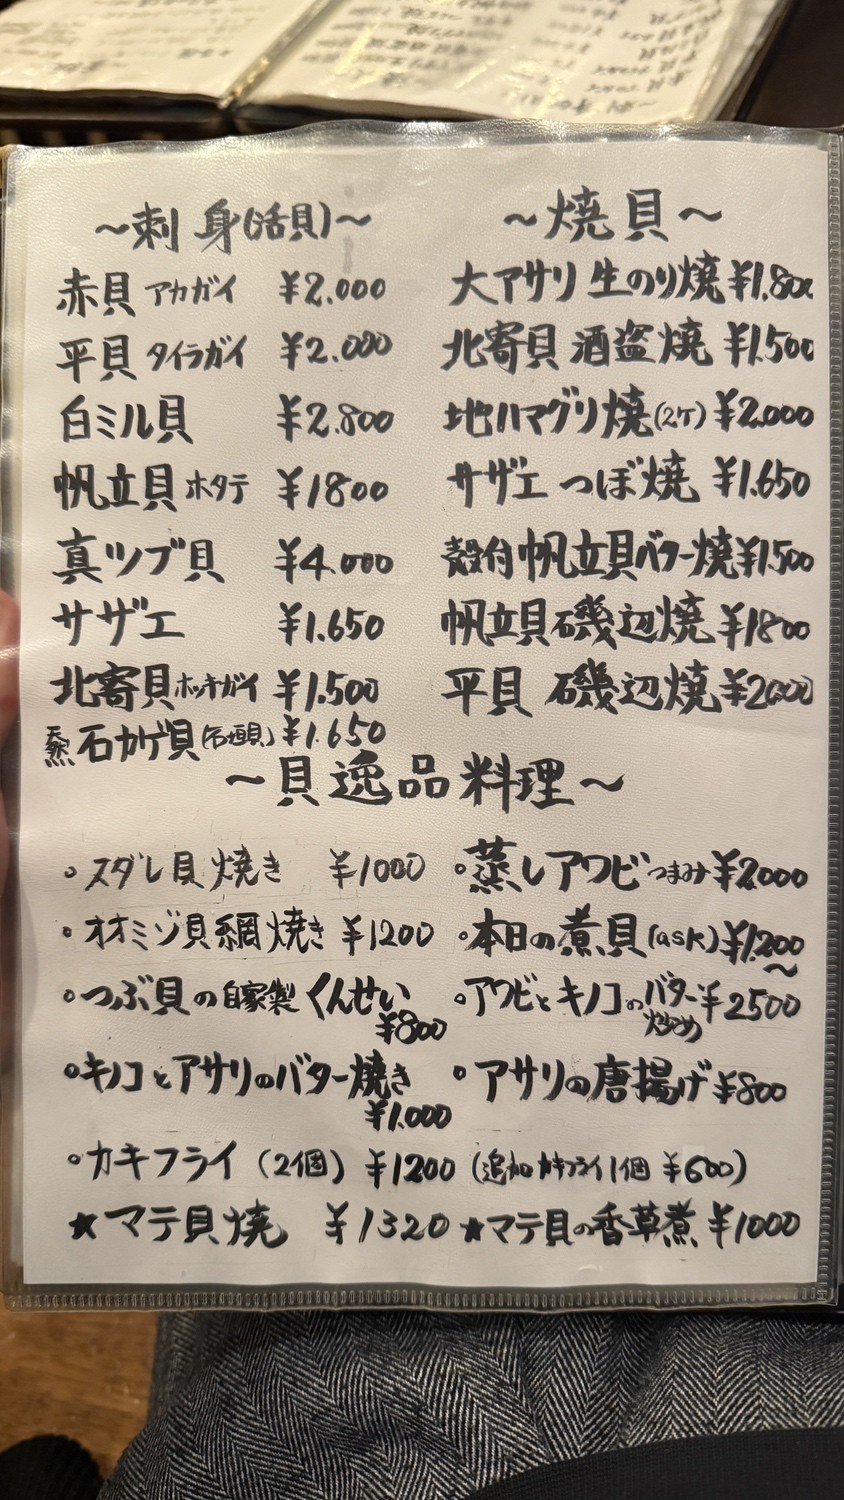 〜刺身(活貝)〜
赤貝 アカガイ ¥2.000
平貝 タイラガイ ¥2.000
白ミル貝 ¥2.800
帆立貝 ホタテ ¥1800
真ツブ貝 ¥4.000
サザエ ¥1.650
北寄貝 ホッキガイ ¥1.500
天然 石カゲ貝(石垣貝) ¥1.650
〜焼貝〜
大アサリ 生のり焼 ¥1.800
北寄貝 酒盗焼 ¥1.500
地ハマグリ焼(2ケ) ¥2.000
サザエ つぼ焼 ¥1.650
殻付帆立貝バター焼 ¥1.500
帆立貝磯辺焼 ¥1800
平貝 磯辺焼 ¥2000
〜貝逸品料理〜
・スダレ貝焼き ¥1000
・オオミゾ貝網焼き ¥1200
・つぶ貝の自家製くんせい
¥800
・キノコとアサリのバター焼き
¥1.000
・蒸しアワビつまみ ¥2.000
・本日の煮貝(ask) ¥1.200
〜
・アワビとキノコのバター炒め ¥2500
・アサリの唐揚げ ¥800
・カキフライ(2個) ¥1200(追加カキフライ1個 ¥600)
★マテ貝焼 ¥1320
★マテ貝の香草煮 ¥1000